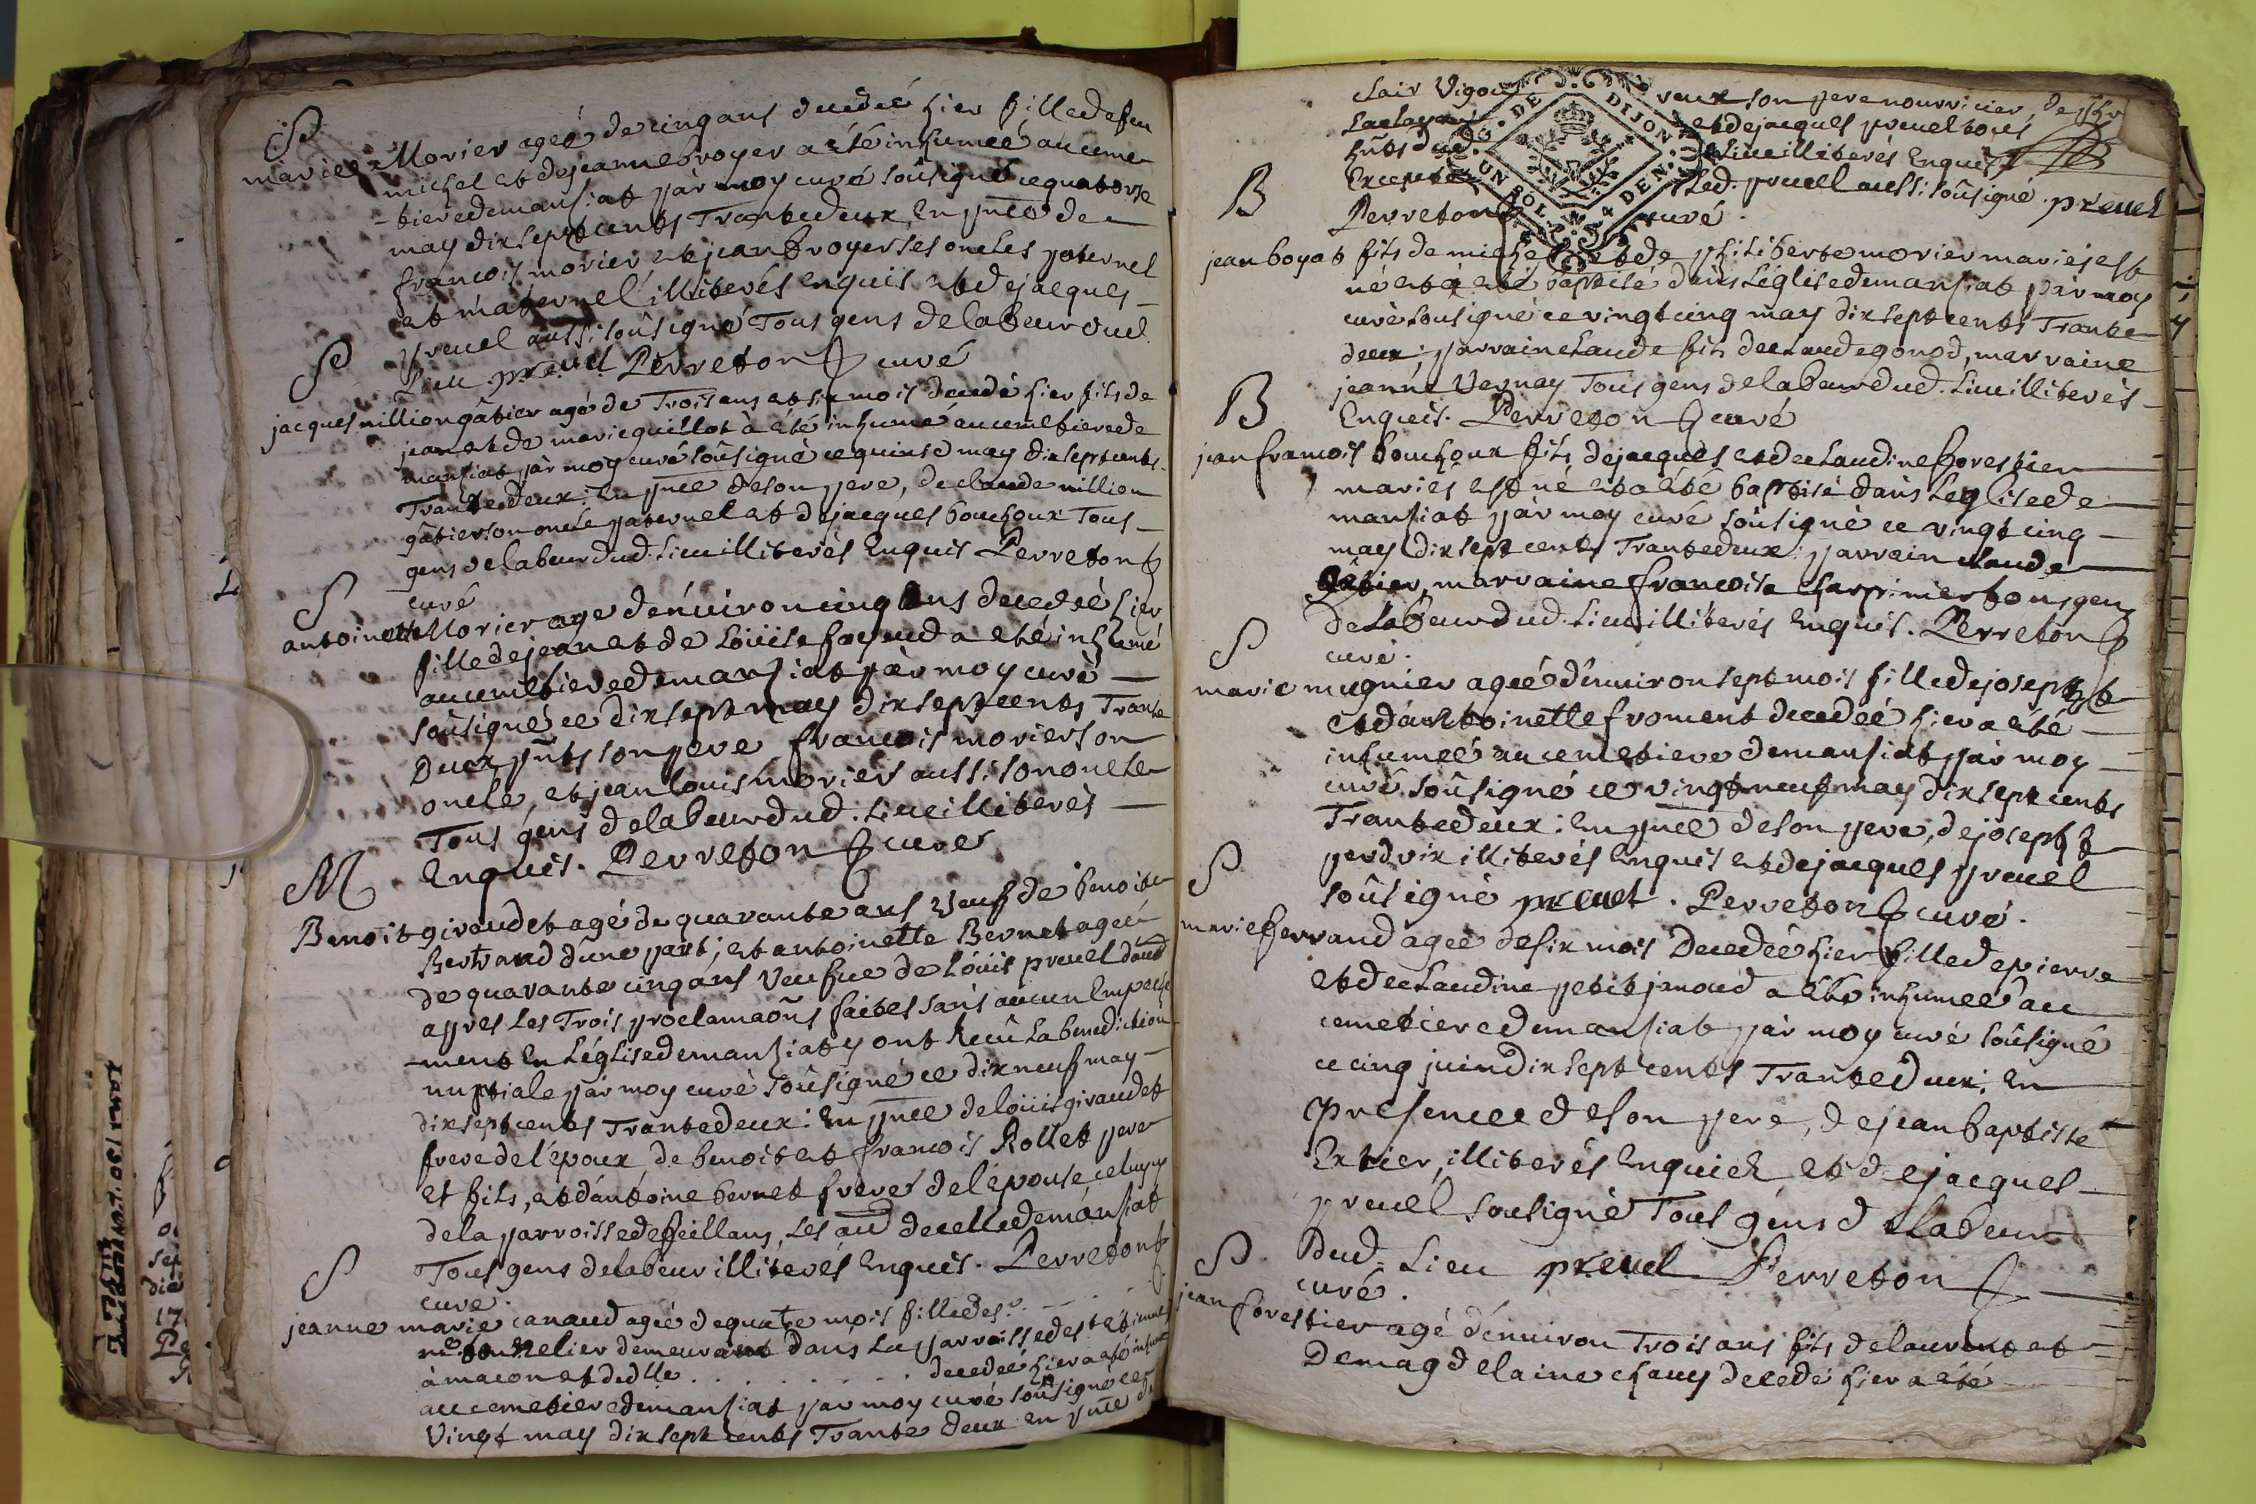 S
marie Morier ageé de cinq ans decedeé hier fille de feu
michel et de jeanne broyer a été inhumeé au cime-
-tiere de mansiat par moy curé soûsigné ce quatorse
may dix sept cents Trante deux, En p̃nce de
francois morier et jean broyer ses oncles paternel
et maternel illiterés enquis et de jacques
preuel aussi soûsigné Tous gens de labeur dud.
Lieu preuel Perreton curé
S
jacques million gâtier agé de Trois ans et six mois decedé hier fils de
jean et de marie guillot à été inhumé au cemetiere de
mansiat par moy curé soûsigné ce quinse may dix sept cents
Trante deux: En p̃nce de son pere, de claude million
gâtier son oncle paternel et de jacques bouchoux Tous
gens de labeur dud. Lieu illiterés Enquis Perreton
curé
S
antoinette Morier age d'énuiron cinq ans decedeé hier
fille de jean et de Loüise fayaud a eté inhumé
au cemetiere de mansiat par moy curé
soûsigné ce dix sept may dix sept cents Trante
Deux p̃nts son pere francois morier son
oncle, et jean louis morier aussi son oncle
Tous gens de labeur dud. Lieu illiterés
Enquis. Perreton curé
M
Benoit giraudet agé de quarante ans veuf de benoite
Bertrand d'une part; et antoinette Bernet ageé
de quarante cinq ans Veufue de Loüis preuel d'aud
apres Les Trois proclamaõns faites sans aucun Empeche
-ment en L'églisе de mansiat y ont Recû La benediction
nuptiale par moy curé soûsigné ce dix neuf may
dix sept cents Trante deux: En p̃nce de loüis giraudet
frere de l'époux de benoit et francois Rollet pere
et fils, et d'antoine bernet frere de l'épouse celuy cy
de la parroisse de feillans, Les au͠ de celle de mansiat
Tous gens de labeur illiterés Enquis. Perreton
curé.
S
jeanne marie canaud ageé de quatre mois fille de s.r
m.e tonnelier demeurant dans La parroisse de st etienne
à macon et de d.lle . . . . . . decedeé hier a eté inhumeé
au cemetiere de mansiat par moy curé soûsigné ce
Vingt may dix sept cents Trante deux en p̃nce de
clair Vigou reux son pere nourricier, de
et de jacques preuel tous
Lieu illiterés Enquis
Excepté Led. preuel aussi soûsigné. preuel
Perreton curé.
DE DIJON
UN SOL 4 DEN.
B
jean boyat fils de michel et de philiberte morier mariés est
né et a eté baptisé dans L'églisе de mansiat par moy
curé soûsigné ce vingt cinq may dix sept cents Trante
deux; parrain claude fils de claude gonod, marraine
jeanne Vernay Tous gens de labeur dud. Lieu illiterés
Enquis. Perreton curé
B
jean francois bouchoux fils de jacques et de claudine forestier
mariés est né et a été baptisé dans L'eglise de
mansiat par moy curé soûsigné ce vingt cinq
may dix sept cents Trante deux: parrain claude
gâtier, marraine francoise charpinier tous gens
de Labeur dud. Lieu illiterés Enquis. Perreton
curé.
S
marie mugnier ageé d'énuiron sept mois fille de joseph
et d'antoinette froment decedeé hier a eté
inhumeé au cemetiere de mansiat par moy
curé soûsigné ce vingt neuf may dix sept cents
Trante deux: En p̃nce de son pere, de joseph
perdrix illiterés Enquis et de jacques preuel
soûsigné preuel. Perreton curé.
S
marie ferrand ageé de six mois Decedeé hier fille de pierre
et de claudine petit janoud a été inhumeé au
cemetiere de mansiat par moy curé soûsigné
ce cinq juin dix sept cents Trante deux: En
presence de son pere, de jean baptiste
Extier, illiterés Enquis et de jacques
preuel sousigné Tous gens de labeur
Dud. Lieu preuel Perreton
curé.
S
jean forestier agé d'énuiron Trois ans fils de laurent et
De magdelaine chauy decedé hier a été